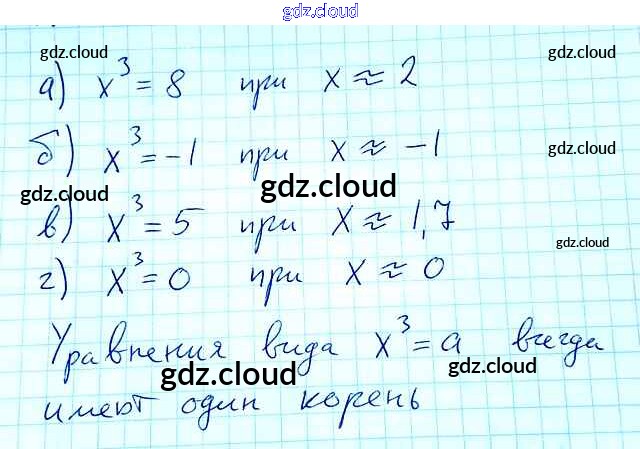 gdz.cloud
gdz.cloud gdz.cloud
а) x³ = 8 при x ≈ 2
б) x³ = -1 при x ≈ -1
gdz.cloud
gdz.cloud gdz.cloud
в) x³ = 5 при x ≈ 1,7
gdz.cloud
г) x³ = 0 при x ≈ 0
Уравнения вида x³ = a всегда
gdz.cloud gdz.cloud
имеют один корень